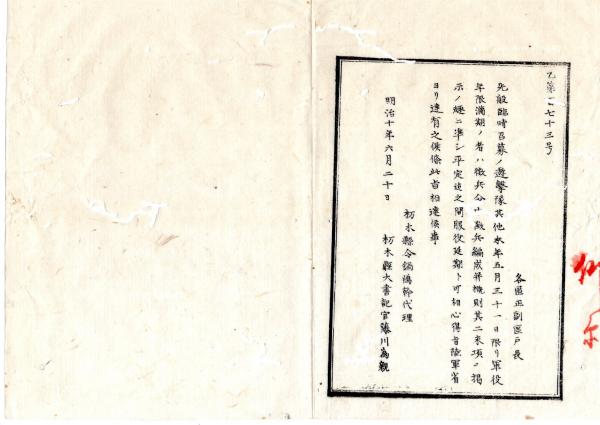 乙第百七十三号
各區正副區戸長
先般臨時召募ノ遊撃隊其他本年五月三十一日限リ軍役
年限満期ノ者ハ徴兵令中散兵編成并概則其二末項ニ掲
示ノ縁ニ準シ平定迄之間服役延期ト可相心得旨陸軍省
ヨリ達有之候條此旨相達候事
明治十年六月二十日
栃木縣令鍋島幹代理
栃木縣大書記官藤川為親